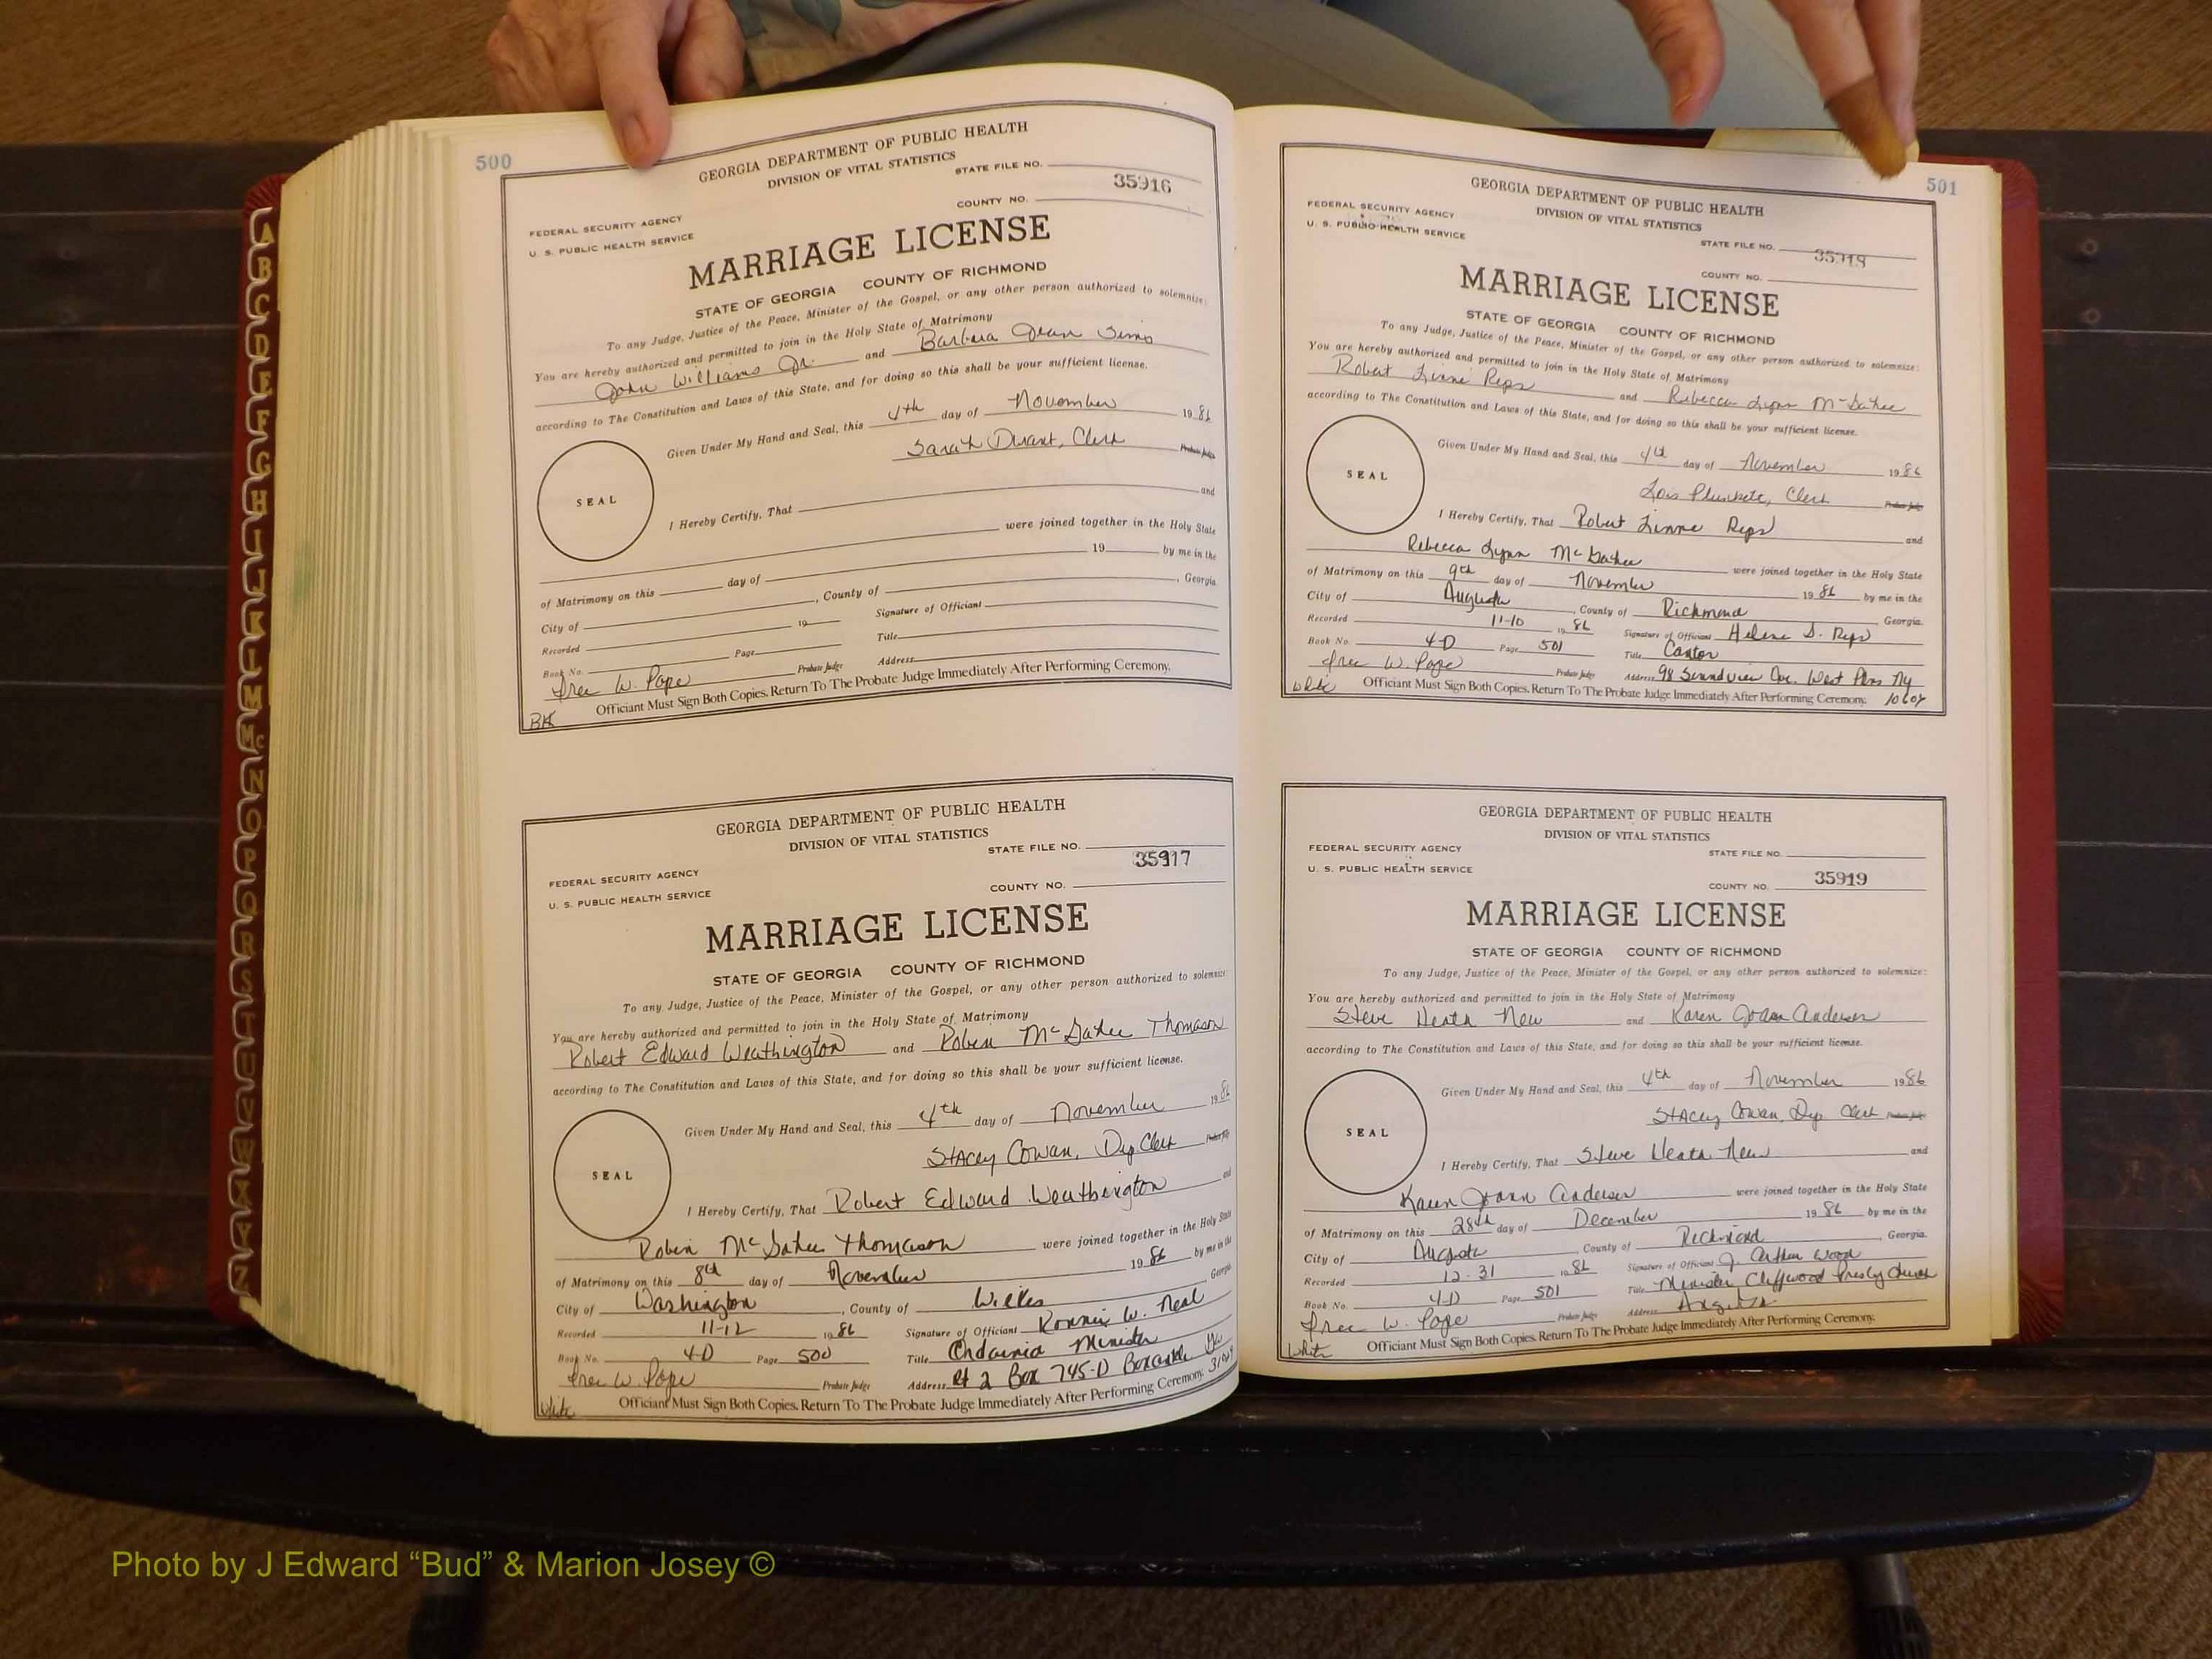 500
GEORGIA DEPARTMENT OF PUBLIC HEALTH
DIVISION OF VITAL STATISTICS
STATE FILE NO.
35916
COUNTY NO.
FEDERAL SECURITY AGENCY
U. S. PUBLIC HEALTH SERVICE
MARRIAGE LICENSE
STATE OF GEORGIA COUNTY OF RICHMOND
To any Judge, Justice of the Peace, Minister of the Gospel, or any other person authorized to solemnize:
You are hereby authorized and permitted to join in the Holy State of Matrimony
John Williams Jr. and Barbara Jean Sims
according to The Constitution and Laws of this State, and for doing so this shall be your sufficient license.
Given Under My Hand and Seal, this 4th day of November 1986
Sarah Durant, Clerk Probate Judge
SEAL
I Hereby Certify, That and
were joined together in the Holy State
of Matrimony on this day of 19 by me in the
City of , County of , Georgia
Recorded 19 Signature of Officiant
Book No. Page Title
Free W. Pope Probate Judge Address
Officiant Must Sign Both Copies. Return To The Probate Judge Immediately After Performing Ceremony.
BK
GEORGIA DEPARTMENT OF PUBLIC HEALTH
DIVISION OF VITAL STATISTICS
STATE FILE NO.
35917
COUNTY NO.
FEDERAL SECURITY AGENCY
U. S. PUBLIC HEALTH SERVICE
MARRIAGE LICENSE
STATE OF GEORGIA COUNTY OF RICHMOND
To any Judge, Justice of the Peace, Minister of the Gospel, or any other person authorized to solemnize:
You are hereby authorized and permitted to join in the Holy State of Matrimony
Robert Edward Weathington and Robin Thomason
according to The Constitution and Laws of this State, and for doing so this shall be your sufficient license.
Given Under My Hand and Seal, this 4th day of November 1986
Stacey Cowan, Dep Clerk Probate Judge
SEAL
I Hereby Certify, That Robert Edward Weathington and
Robin Thomason were joined together in the Holy State
of Matrimony on this 8th day of November 1986 by me in the
City of Washington, County of Wilkes Georgia
Recorded 11-12 1986 Signature of Officiant Ronnie W. Neal
Book No. 4-D Page 500 Title Ordained Minister
Free W. Pope Probate Judge Address Rt 2 Box 745-D
Officiant Must Sign Both Copies. Return To The Probate Judge Immediately After Performing Ceremony.
White
501
GEORGIA DEPARTMENT OF PUBLIC HEALTH
DIVISION OF VITAL STATISTICS
FEDERAL SECURITY AGENCY
U. S. PUBLIC HEALTH SERVICE
STATE FILE NO.
COUNTY NO.
MARRIAGE LICENSE
STATE OF GEORGIA COUNTY OF RICHMOND
To any Judge, Justice of the Peace, Minister of the Gospel, or any other person authorized to solemnize:
You are hereby authorized and permitted to join in the Holy State of Matrimony
Robert Linne Reps and Rebecca Lynn
according to The Constitution and Laws of this State, and for doing so this shall be your sufficient license.
Given Under My Hand and Seal, this 4th day of November 1986
Lois Plunkett, Clerk Probate Judge
SEAL
I Hereby Certify, That Robert Linne Reps and
Rebecca Lynn were joined together in the Holy State
of Matrimony on this 9th day of November 1986 by me in the
City of Augusta, County of Richmond Georgia.
Recorded 11-10 1986 Signature of Officiant Helene S. Reps
Book No. 4-D Page 501 Title Cantor
Free W. Pope Probate Judge Address 98
Officiant Must Sign Both Copies. Return To The Probate Judge Immediately After Performing Ceremony.
White
GEORGIA DEPARTMENT OF PUBLIC HEALTH
DIVISION OF VITAL STATISTICS
FEDERAL SECURITY AGENCY
U. S. PUBLIC HEALTH SERVICE
STATE FILE NO.
35919
COUNTY NO.
MARRIAGE LICENSE
STATE OF GEORGIA COUNTY OF RICHMOND
To any Judge, Justice of the Peace, Minister of the Gospel, or any other person authorized to solemnize:
You are hereby authorized and permitted to join in the Holy State of Matrimony
Steve Heath New and Karen Joann Andersen
according to The Constitution and Laws of this State, and for doing so this shall be your sufficient license.
Given Under My Hand and Seal, this 4th day of November 1986
Stacey Cowan, Dep Clerk Probate Judge
SEAL
I Hereby Certify, That Steve Heath New and
Karen Joann Andersen were joined together in the Holy State
of Matrimony on this 28th day of December 1986 by me in the
City of Augusta, County of Richmond Georgia.
Recorded 12-31 1986 Signature of Officiant J. Arthur Wood
Book No. 4-D Page 501 Title Minister Cliffwood Presby Church
Free W. Pope Probate Judge Address Augusta
Officiant Must Sign Both Copies. Return To The Probate Judge Immediately After Performing Ceremony.
White
A
B
C
D
E
F
G
H
I
J
K
L
M
Mc
N
O
P
Q
R
S
T
U
V
W
X
Y
Z
Photo by J Edward “Bud” & Marion Josey ©